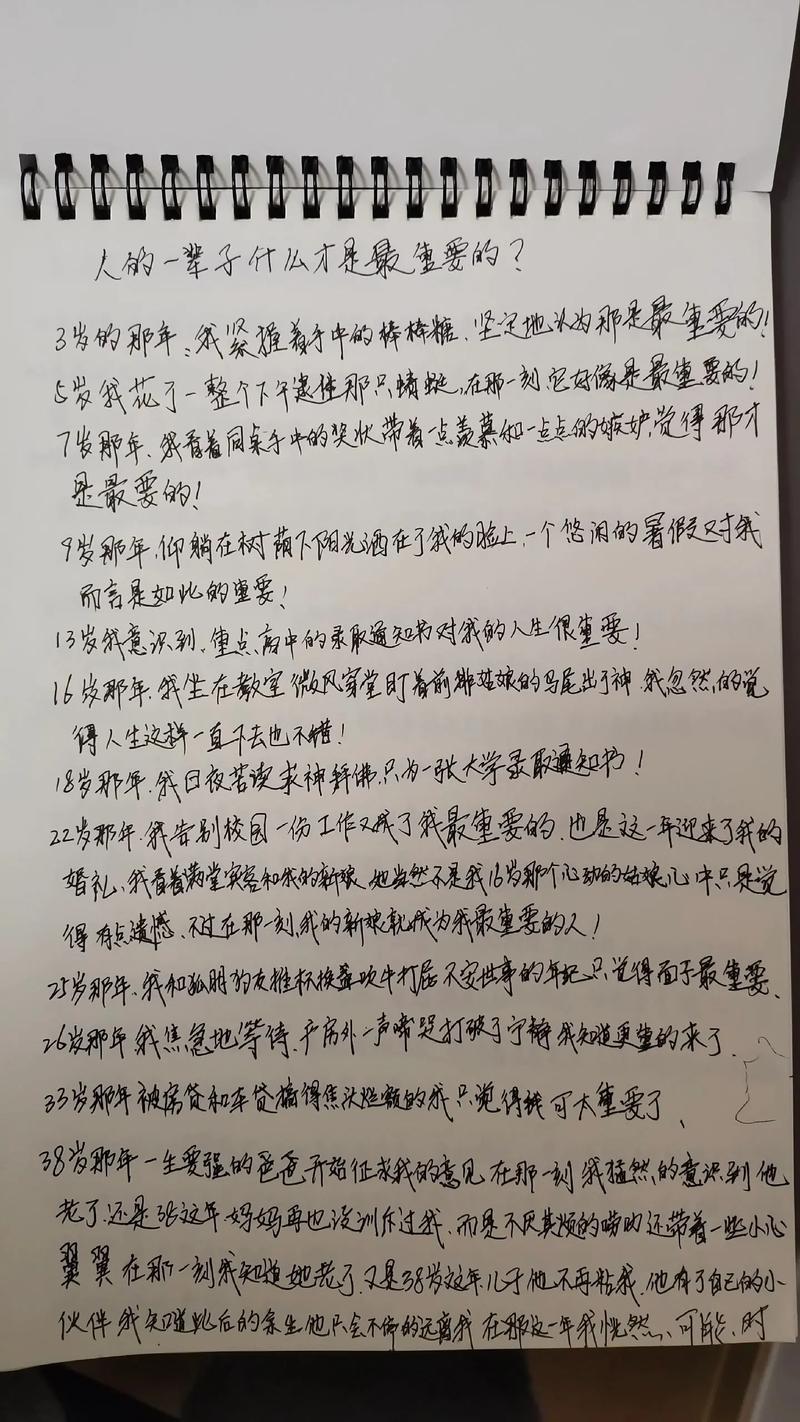 人的一辈子什么才是最重要的？
3岁的那年，我紧握着手中的棒棒糖、坚定地认为那是最重要的！
5岁我花了一整个下午逮住那只蜻蜓，在那一刻它好像是最重要的！
7岁那年、我看着同桌手中的奖状带着一点羡慕和一点点的嫉妒，觉得那才
是最要的！
9岁那年，仰躺在树荫下阳光洒在了我的脸上、一个悠闲的暑假对我
而言是如此的重要！
13岁我意识到、重点高中的录取通知书对我的人生很重要！
16岁那年、我坐在教室微风穿堂盯着前排姑娘的马尾出了神、我忽然的觉
得人生这样一直下去也不错！
18岁那年、我日夜苦读求神拜佛、只为一张大学录取通知书！
22岁那年、我告别校园一份工作又成了我最重要的、也是这一年迎来了我的
婚礼、我看着满堂宾客和我的新娘、她当然不是我16岁那个心动的姑娘心中只是觉
得有点遗憾、不过在那一刻、我的新娘就成为我最重要的人！
25岁那年、我和狐朋狗友推杯换盏吹牛打屁不安世事的年纪只觉得面子最重要、
26岁那年我焦急地等待、产房外一声啼哭打破了宁静我知道更重的来了、
33岁那年被房贷和车贷搞得焦头烂额的我只觉得钱可太重要了、
38岁那年一生要强的爸爸开始征求我的意见在那一刻我猛然的意识到他
老了、还是38这年妈妈再也没训斥过我、而是不厌其烦的唠叨还带着一些小心
翼翼在那一刻我知道她老了、又是38岁这年儿子他不再粘我、他有了自己的小
伙伴我知道此后的余生他只会不停的远离我在那这一年我恍然、可能、时